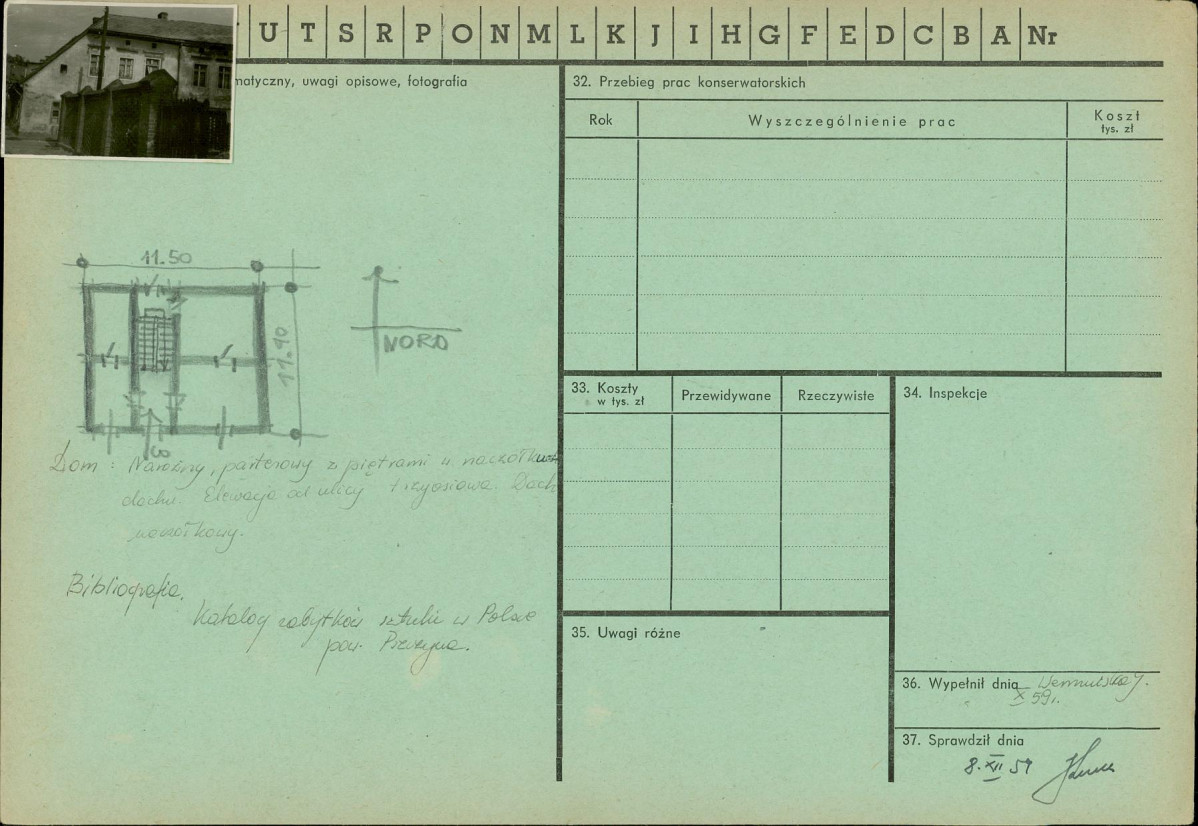 U T S R P O N M L K J I H G F E D C B A Nr
matyczny, uwagi opisowe, fotografia
11.50
11.90
NORD
Dom: Narożny, parterowy z piętrami w naczółku
dachu. Elewacja od ulicy trzyosiowa. Dach
naczółkowy.
Bibliografia.
Katalog zabytków sztuki w Polsce
pow. Pszczyna.
32. Przebieg prac konserwatorskich
Rok
Wyszczególnienie prac
Koszt
tys. zł
33. Koszty
w tys. zł
Przewidywane
Rzeczywiste
34. Inspekcje
35. Uwagi różne
36. Wypełnił dnia
X 59 r.
37. Sprawdził dnia
8. XII 59